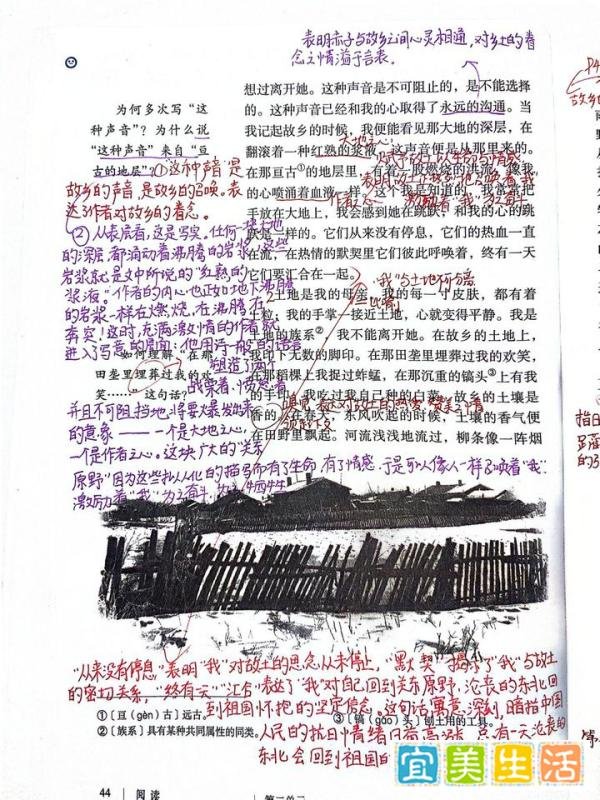 表明赤子与故乡之间心灵相通,对乡土的眷
念之情溢于言表。
想过离开她。这种声音是不可阻止的,是不能选择
的。这种声音已经和我的心取得了永远的沟通。当
我记起故乡的时候,我便能看见那大地的深层,在
翻滚着一种红熟的浆液,这声音便是从那里来的。
在那亘古①的地层里,有着一股燃烧的洪流,像我
的心喷涌着血液一样。这个我是知道的,我常常把
手放在大地上,我会感到她在跳跃,和我的心的跳
跃是一样的。它们从来没有停息,它们的热血一直
在流,在热情的默契里它们彼此呼唤着,终有一天
它们要汇合在一起。
土地是我的母亲,我的每一寸皮肤,都有着
土粒;我的手掌一接近土地,心就变得平静。我是
土地的族系②,我不能离开她。在故乡的土地上,
我印下无数的脚印。在那田垄里埋葬过我的欢笑,
在那稻棵上我捉过蚱蜢,在那沉重的镐头③上有我
的手印。我吃过我自己种的白菜。故乡的土壤是
香的。在春天,东风吹起的时候,土壤的香气便
在田野里飘起。河流浅浅地流过,柳条像一阵烟
为何多次写“这
种声音”?为什么说
“这种声音”来自“亘
古的地层”?
①这种声音是
故乡的声音,是故乡的召唤。表
达了作者对故乡的眷念。
②从表层看,这是写实。任何一块土地
的深层,都涌动着沸腾的岩浆,这些
岩浆就是文中所说的“红熟的
浆液。”作者的内心也正如地下沸腾
的岩浆一样在燃烧,在沸腾,在
奔突!这时,充满激情的作者就
进入了写意的层面:他用诗一般的语言
塑造了两个
如何理解“在那
田垄里埋葬过我的欢
笑……”这句话?
并且不可阻挡地将要爆发出来
的意象——一个是大地之心,
一个是作者之心。这块广大的“关东
原野”因为这些拟人化的描写而有了生命,有了情感,于是可以像人一样召唤着“我”
激励着“我”为之奋斗,为之牺牲
大地之心
作者之心
“我”与土地不可分
“从来没有停息”表明“我”对故土的思念从未停止,“默契”揭示了“我”与故土
的密切关系,“终有一天”“汇合”表达了“我”对自己回到关东原野,沦丧的东北回
到祖国怀抱的坚定信念。这句话寓意深刻,暗指中国
人民的抗日情绪日益高涨,总有一天沦丧的
东北会回到祖国的
①〔亘(gèn)古〕远古。
②〔族系〕具有某种共同属性的同类。
③〔镐(gǎo)头〕刨土用的工具。
44 阅读
第二单元
宜美生活